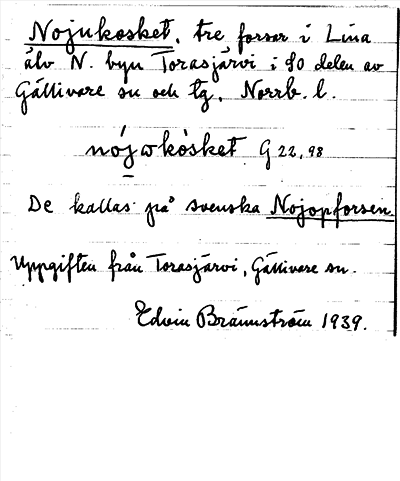 Nojukosket, tre forsar i Lina
älv N. byn Torasjärvi i SO delen av
Gällivare sn och tg, Norrb. l.
nój ω kòsket G 22, 98
De kallas på svenska Nojopforsen.
Uppgiften från Torasjärvi, Gällivare sn.
Edvin Brännström 1939.